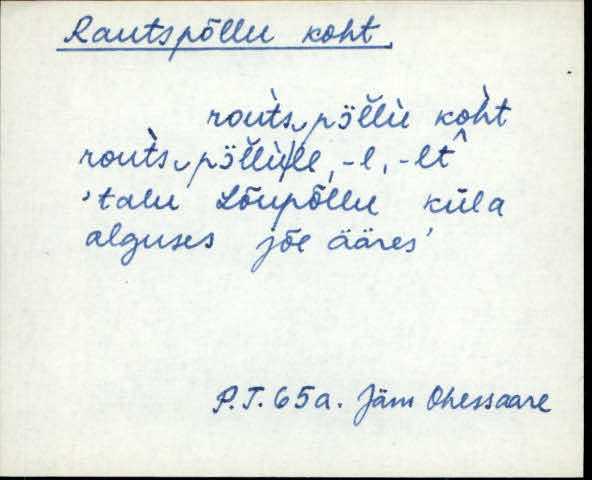 Rautspõllu koht.
rout̀s‿pö̆llù kòht
rout̀s‿pö̆llù|le, -l, -lt
'talu Lõupõllu küla
alguses jõe ääres'
P.T. 65a. Jäm Ohessaare